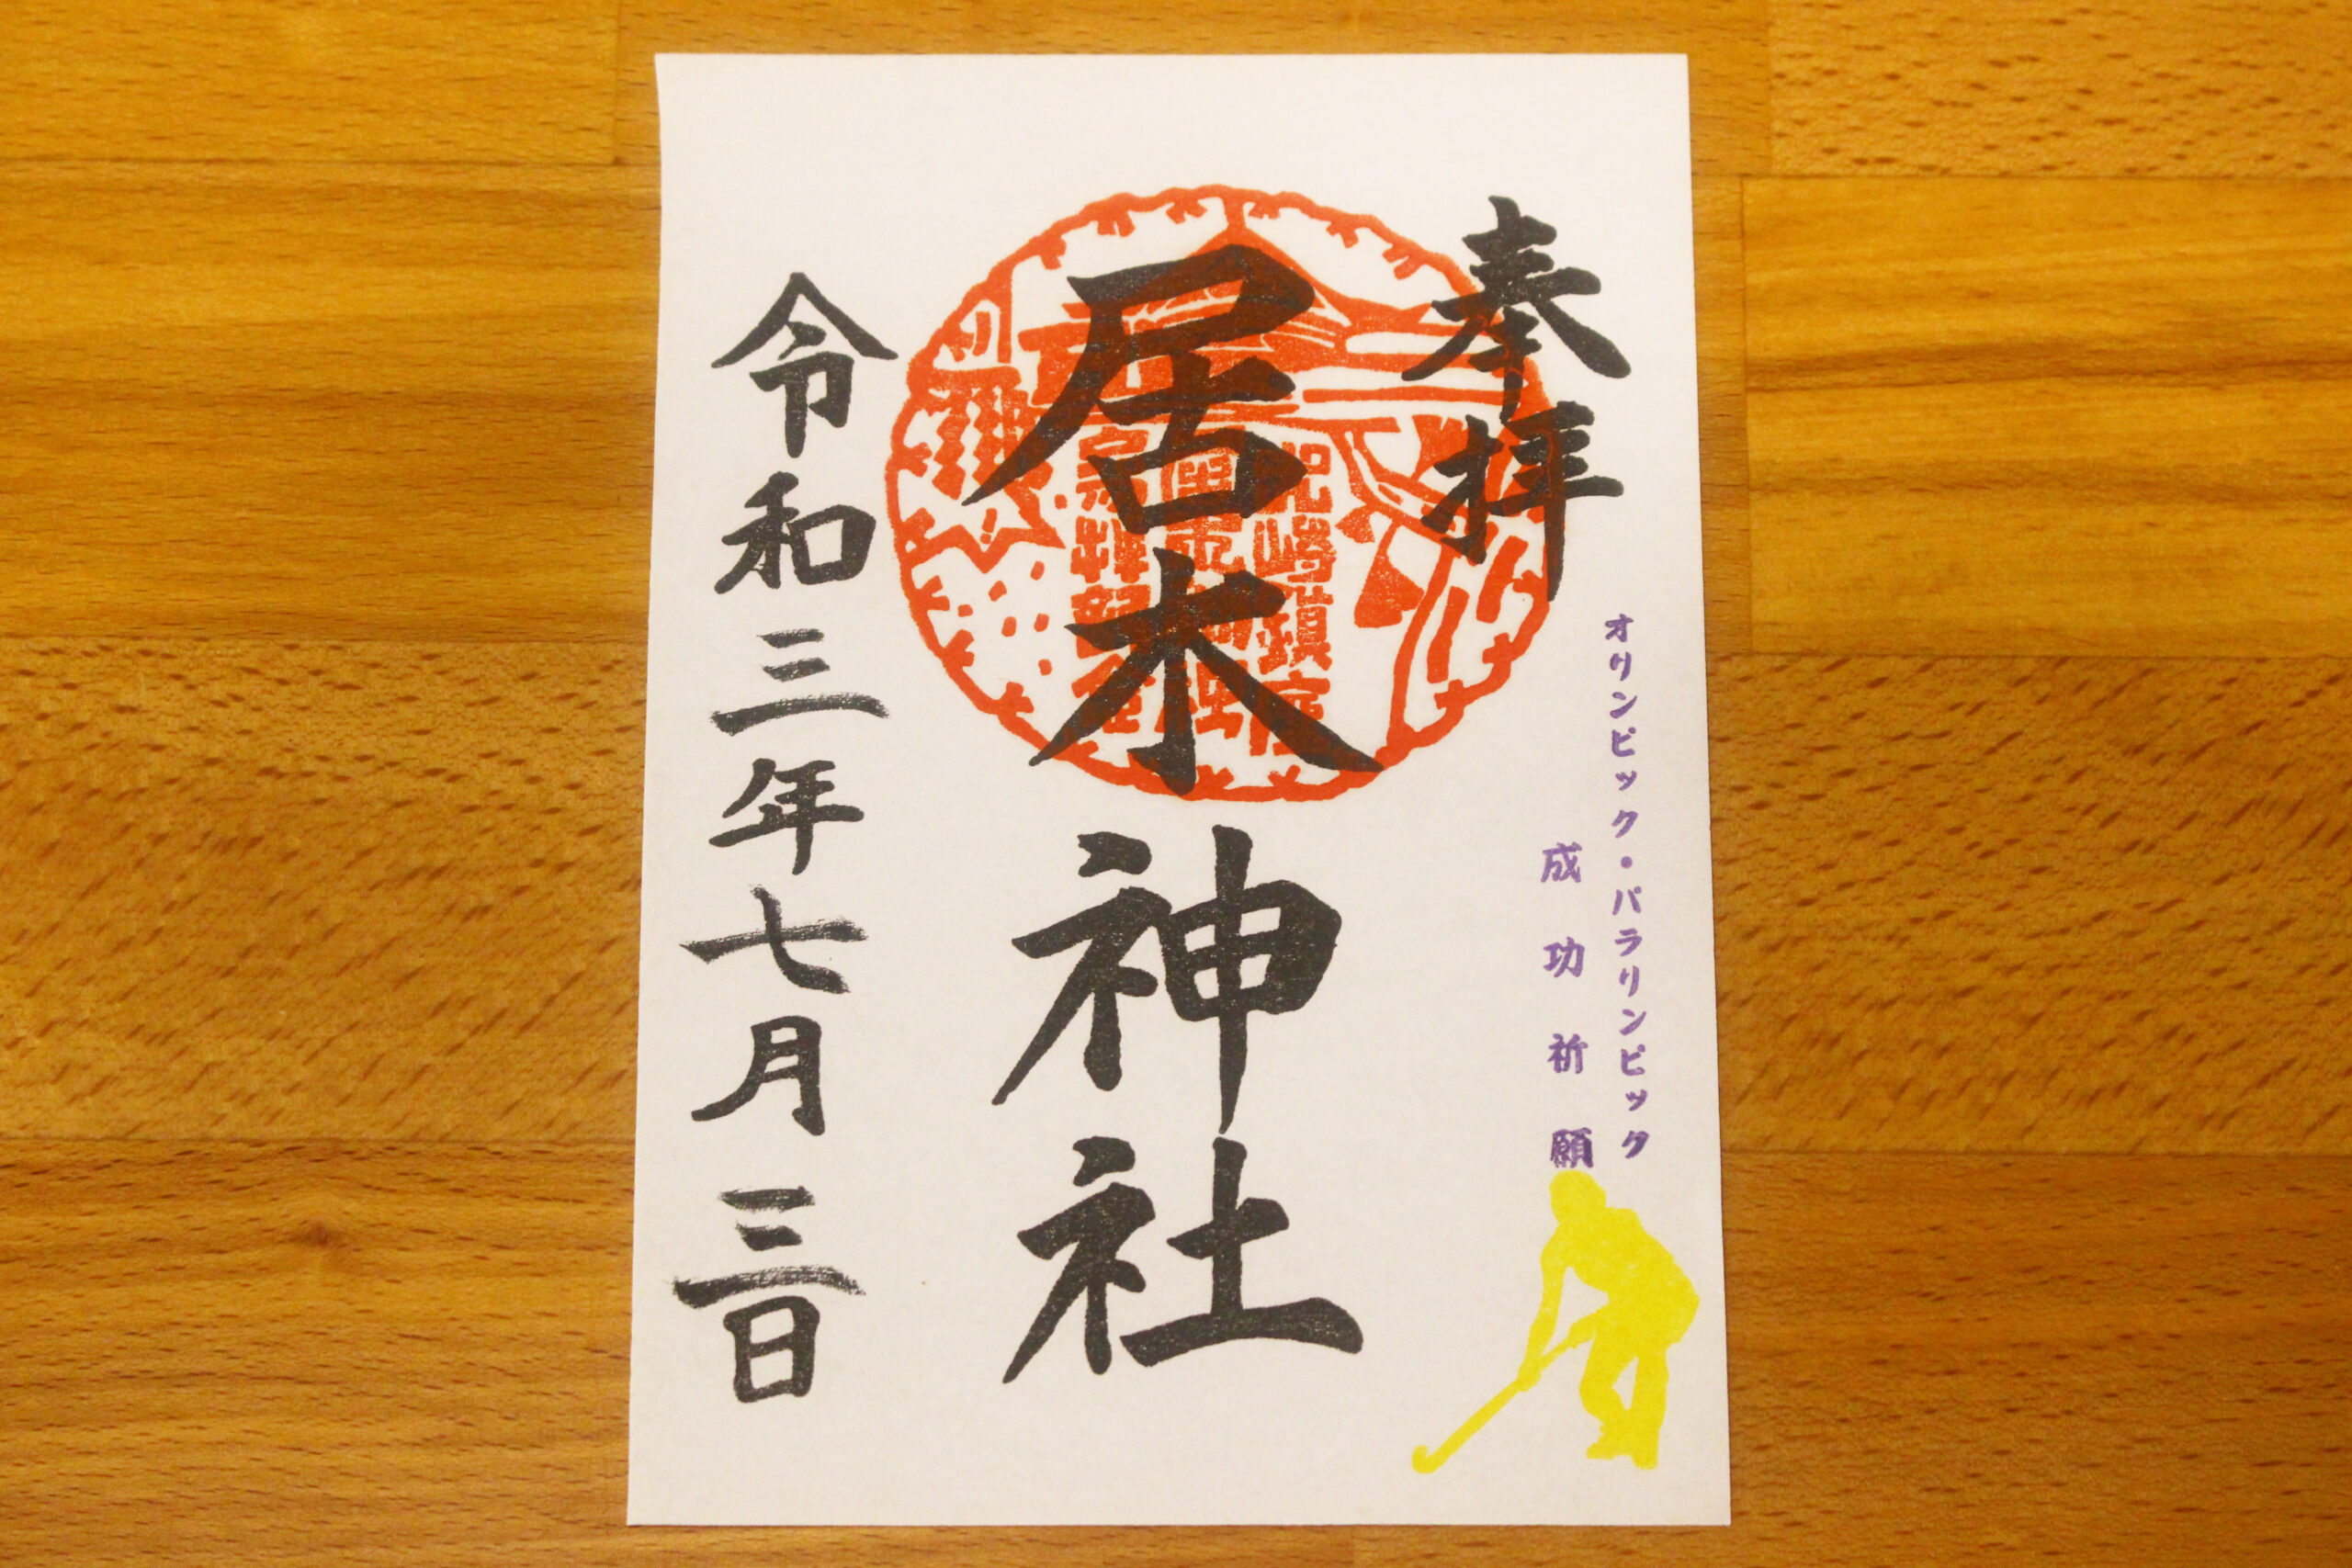 奉拝
オリンピック・パラリンピック
成功祈願
居木神社
令和三年七月三日